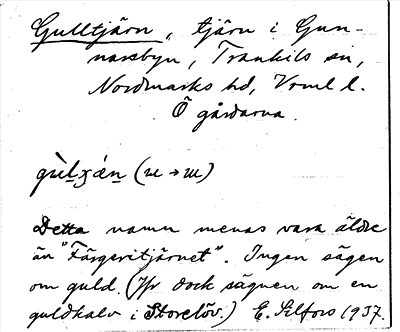 Gulltjärn, tjärn i Gun-
narsbyn, Trankils sn,
Nordmarks hd, Vrml l.
Ö gårdarna.
gùlχǽn (u → ɯ)
Detta namn menas vara äldre
än "Färgeritjärnet". Ingen sägen
om guld. (Jfr dock sägnen om en
guldkalv i Storelöv.) E. Silfors 1937.